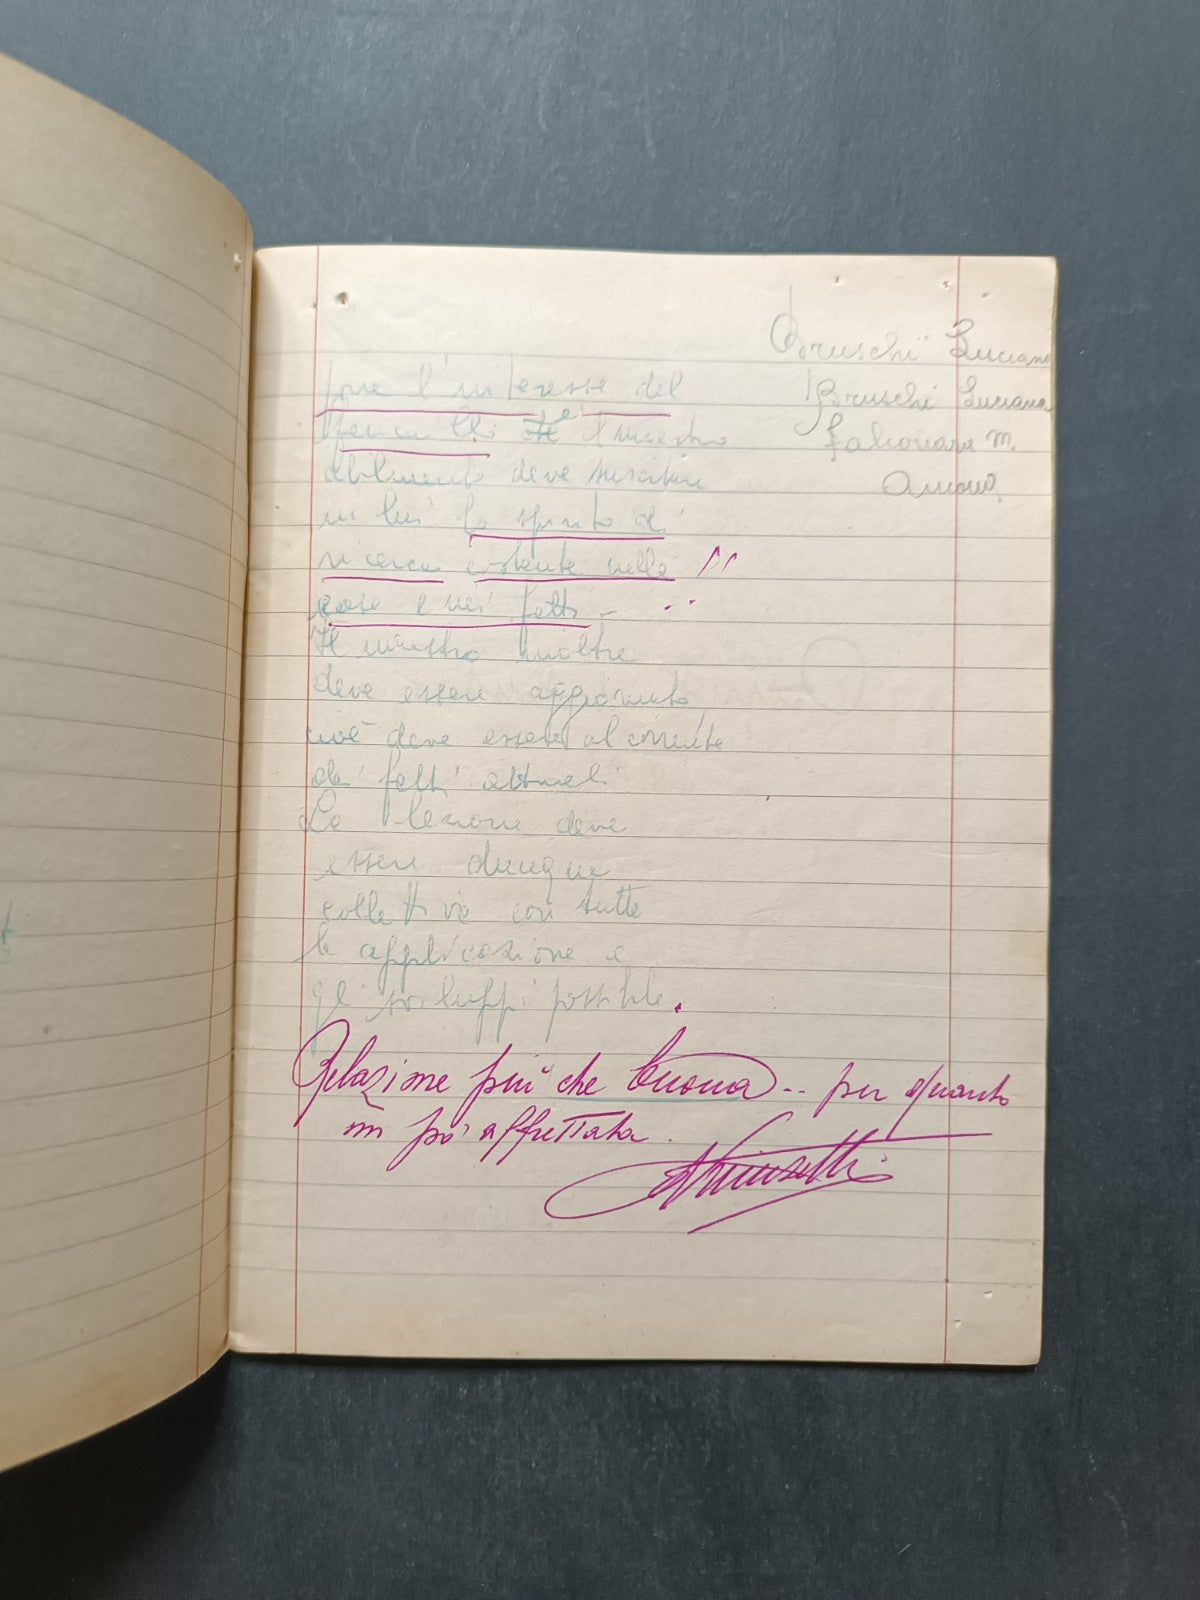 Bruschi Luciana
Bruschi Luciana
Falconara M.
Ancona
l'interesse del
il maestro
deve suscitare
in lui lo spirito di
ricerca costante nelle
cose e nei fatti -
Il maestro inoltre
deve essere aggiornato
cioè deve essere al corrente
dei fatti attuali
La lezione deve
essere dunque
collettiva con tutte
le applicazione e
gli sviluppi possibile.
Relazione più che buona -- per quanto
un po' affrettata.